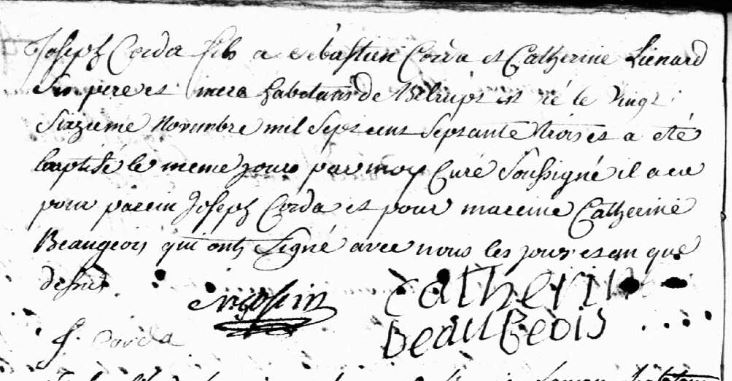 Joseph Corda fils a sebastien Corda et Catherine Lienard
ses pere et mere habotans de Belrupt est né le vingt
sixieme novembre mil sept cent septante trois et a eté
baptisé le meme jour par moy Curé soussigné il a eu
pour parein Joseph Corda et pour mareine Catherine
Beaugeois qui ont signé avec nous les jour et an que
dessus
Catherin
Beaugeois
J. Corda